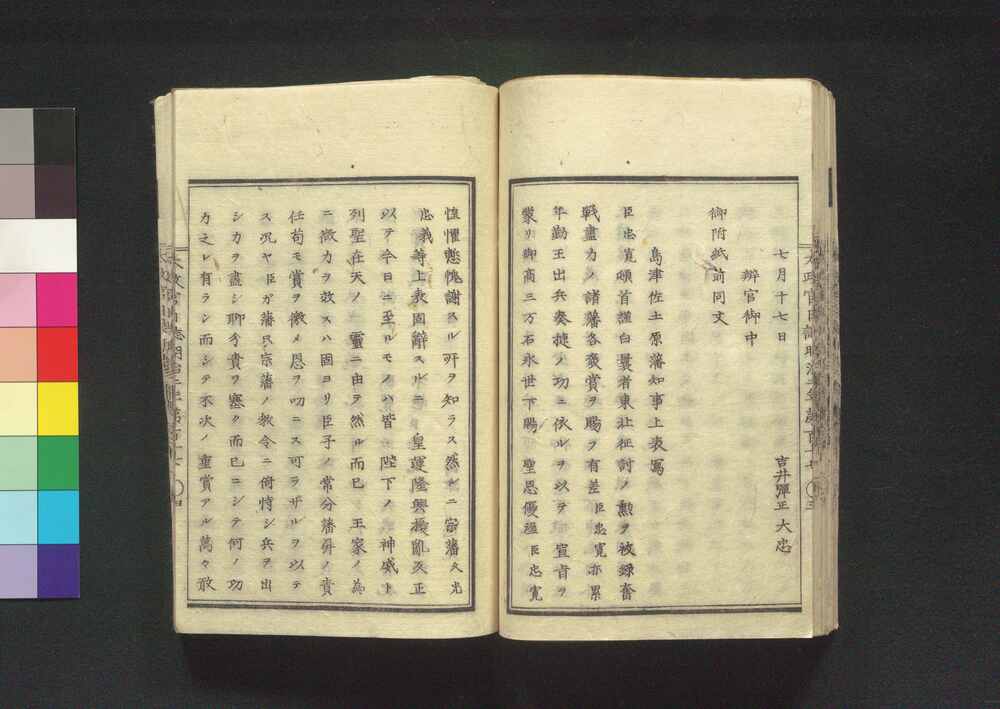 七月十七日
吉井彈正大忠
辨官御中
御附紙前同文
島津佐土原藩知事上表寫
臣忠寛頓首謹白曩者東北征討ノ勲ヲ被録奮
戰盡力ノ諸藩各褒賞ヲ賜ヲ有差臣忠寛亦累
年勤王出兵奏捷ノ功ニ依ルヲ以テ宣旨ヲ
蒙リ御高三万石永世下賜聖恩優渥臣忠寛
惶懼慙愧謝スル所ヲ知ラス然ルニ宗藩久光
忠義等上表固辭スルニ皇運隆興撥亂反正
以テ今日ニ至ルモノハ皆陛下ノ神威ト
列聖在天ノ靈ニ由ヲ然ル而已王家ノ為
ニ微力ヲ效スハ固ヨリ臣子ノ常分藩屏ノ責
任苟モ賞ヲ徼メ恩ヲ叨ニス可ラザルヲ以テ
ス况ヤ臣ガ藩只宗藩ノ教令ニ倚恃シ兵ヲ出
シカヲ盡シ聊今責ヲ塞ク而已ニシテ何ノ功
力之レ有ラン而シテ不次ノ重賞アル萬々敢